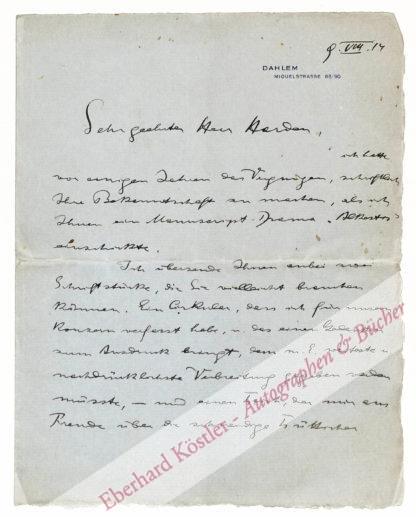 9. VIII. 14
DAHLEM
MIQUELSTRASSE 88/90
Sehr geehrter Herr Harden,
ich hatte
vor einigen Jahren das Vergnügen, schriftlich
Ihre Bekanntschaft zu machen, als ich
Ihnen ein Manuscript-Drama „Alkestis"
einschickte.
Ich übersende Ihnen anbei zwei
Schriftstücke, die Sie vielleicht brauchen
können. Ein Cirkular, dass ich für unsern
Konzern verfasst habe, u. das einen Gedanken
zum Ausdruck bringt, dem m. E. weiteste u.
nachdrücklichste Verbreitung gegeben werden
müsste, – und einen der mir aus
Freude über die
Eberhard Köstler - Autographen & Bücher